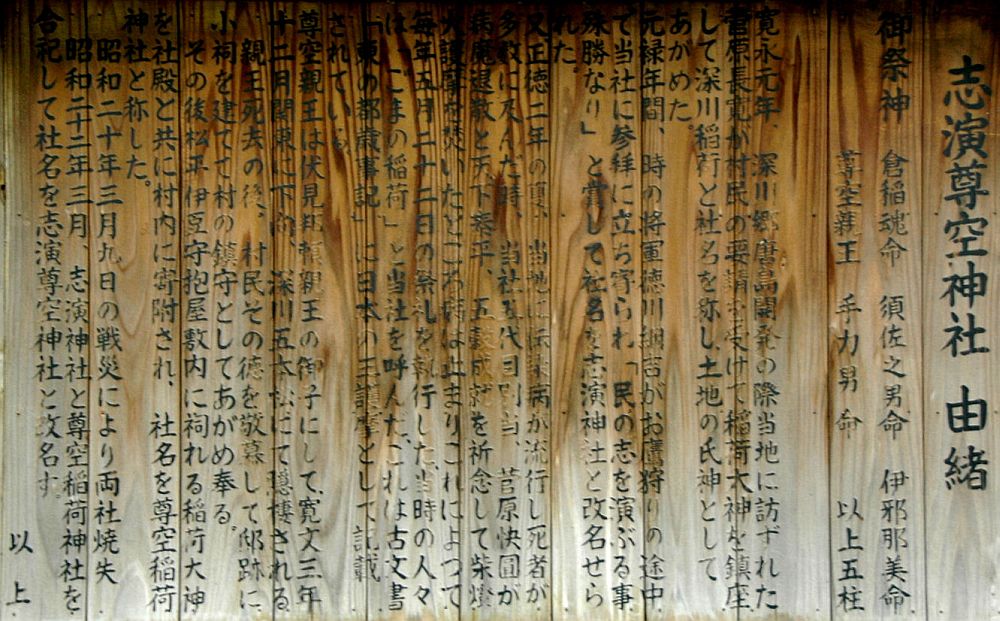 志演尊空神社 由緒
御祭神 倉稲魂命 須佐之男命 伊邪那美命
尊空親王 手力男命 以上五柱
寛永元年、深川郷海島開発の際当地に訪ずれた
菅原長寛が村民の要請を受けて稲荷大神を鎮座
して深川稲荷と社名を称し土地の氏神として
あがめた。
元禄年間、時の将軍徳川綱吉がお鷹狩りの途中
で当社に参拝に立ち寄られ「民の志を演ぶる事
殊勝なり」と賞して社名を志演神社と改名せら
れた。
又正徳二年の夏、当地に伝染病が流行し死者が
多数に及んだ時、当社五代目別当 菅原快圓が
病魔退散と天下泰平、五穀成就を祈念して柴燈
火護摩を焚いたところ病は止まりこれによって
毎年五月二十二日の祭礼を執行した、当時の人々
は、「ごまの稲荷」と当社を呼んだ、これは古文書
「東の都歳事記」に日本の三護摩として記載
されている。
尊空親王は伏見邦頼親王の御子にして、寛文三年
十二月関東に下向、深川五本松にて隠棲される
親王死去の後、村民その徳を敬慕して邸跡に
小祠を建てて村の鎮守としてあがめ奉る。
その後松平伊豆守抱屋敷内に祠れる稲荷大神
を社殿と共に村内に寄附され、社名を尊空稲荷
神社と称した。
昭和二十年三月九日の戦災により両社焼失
昭和二十三年三月、志演神社と尊空稲荷神社を
合祀して社名を志演尊空神社と改名す。
以上